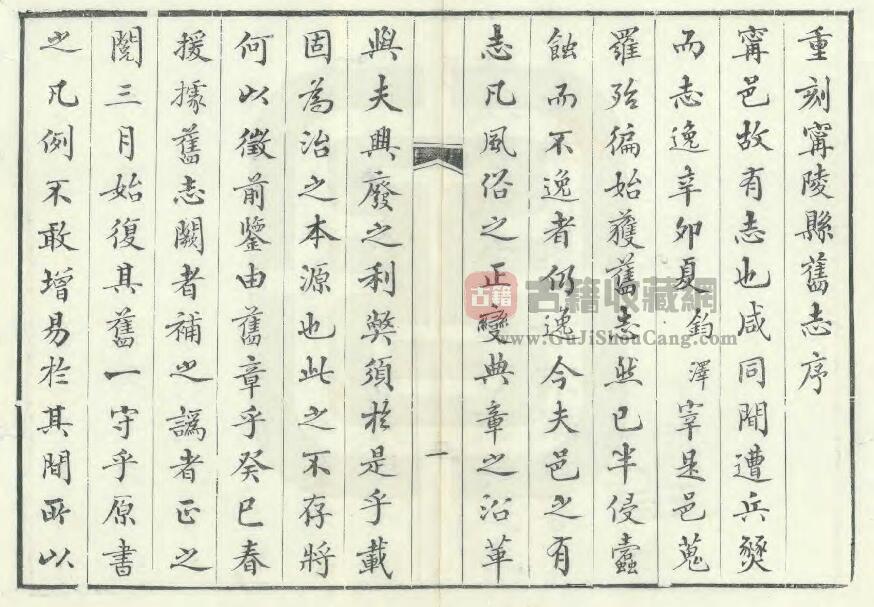 重刻甯陵縣舊志序
甯邑故有志也咸同間遭兵燹
而志逸辛卯夏鈞澤宰是邑蒐
羅殆徧始獲舊志然已半侵蠹
蝕而不逸者仍逸今夫邑之有
志凡風俗之正變典章之沿革
一
與夫興廢之利獘須於是乎載
固為治之本源也此之不存將
何以徵前鑒由舊章乎癸巳春
援據舊志闕者補之譌者正之
閱三月始復其舊一守乎原書
之凡例不敢增易於其間所以
古籍
古籍收藏網
www.GuJiShouCang.com